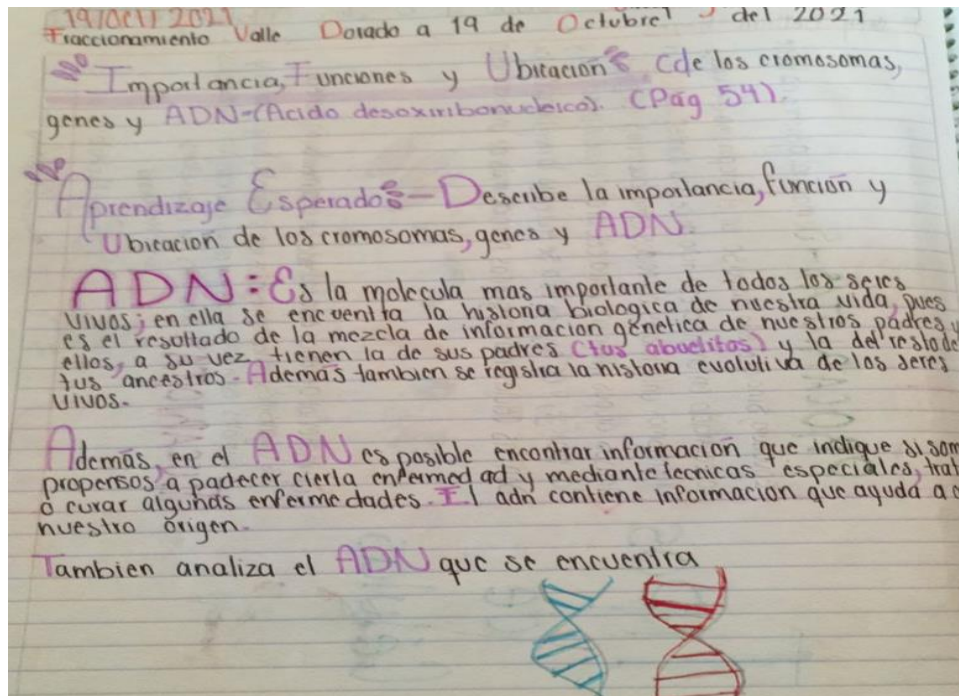 19/Oct/2021
Fraccionamiento Valle Dorado a 19 de Octubre del 2021
Importancia, Funciones y Ubicación (de los cromosomas,
genes y ADN-(Acido desoxirribonucleico). (Pag 54).
Aprendizaje Esperado:- Describe la importancia, función y
Ubicacion de los cromosomas, genes y ADN.
ADN: Es la molecula mas importante de todos los seres
vivos; en ella se encuentra la historia biologica de nuestra vida, pues
es el resultado de la mezcla de informacion genetica de nuestros padres y
ellos, a su vez tienen la de sus padres (tus abuelitos) y la del resto de
tus ancestros. Además tambien se registra la historia evolutiva de los seres
vivos.
Además, en el ADN es posible encontrar información que indique si som
propensos a padecer cierta enfermedad y mediante tecnicas especiales, trat
o curar algunas enfermedades. El adn contiene informacion que ayuda a
nuestro origen.
Tambien analiza el ADN que se encuentra